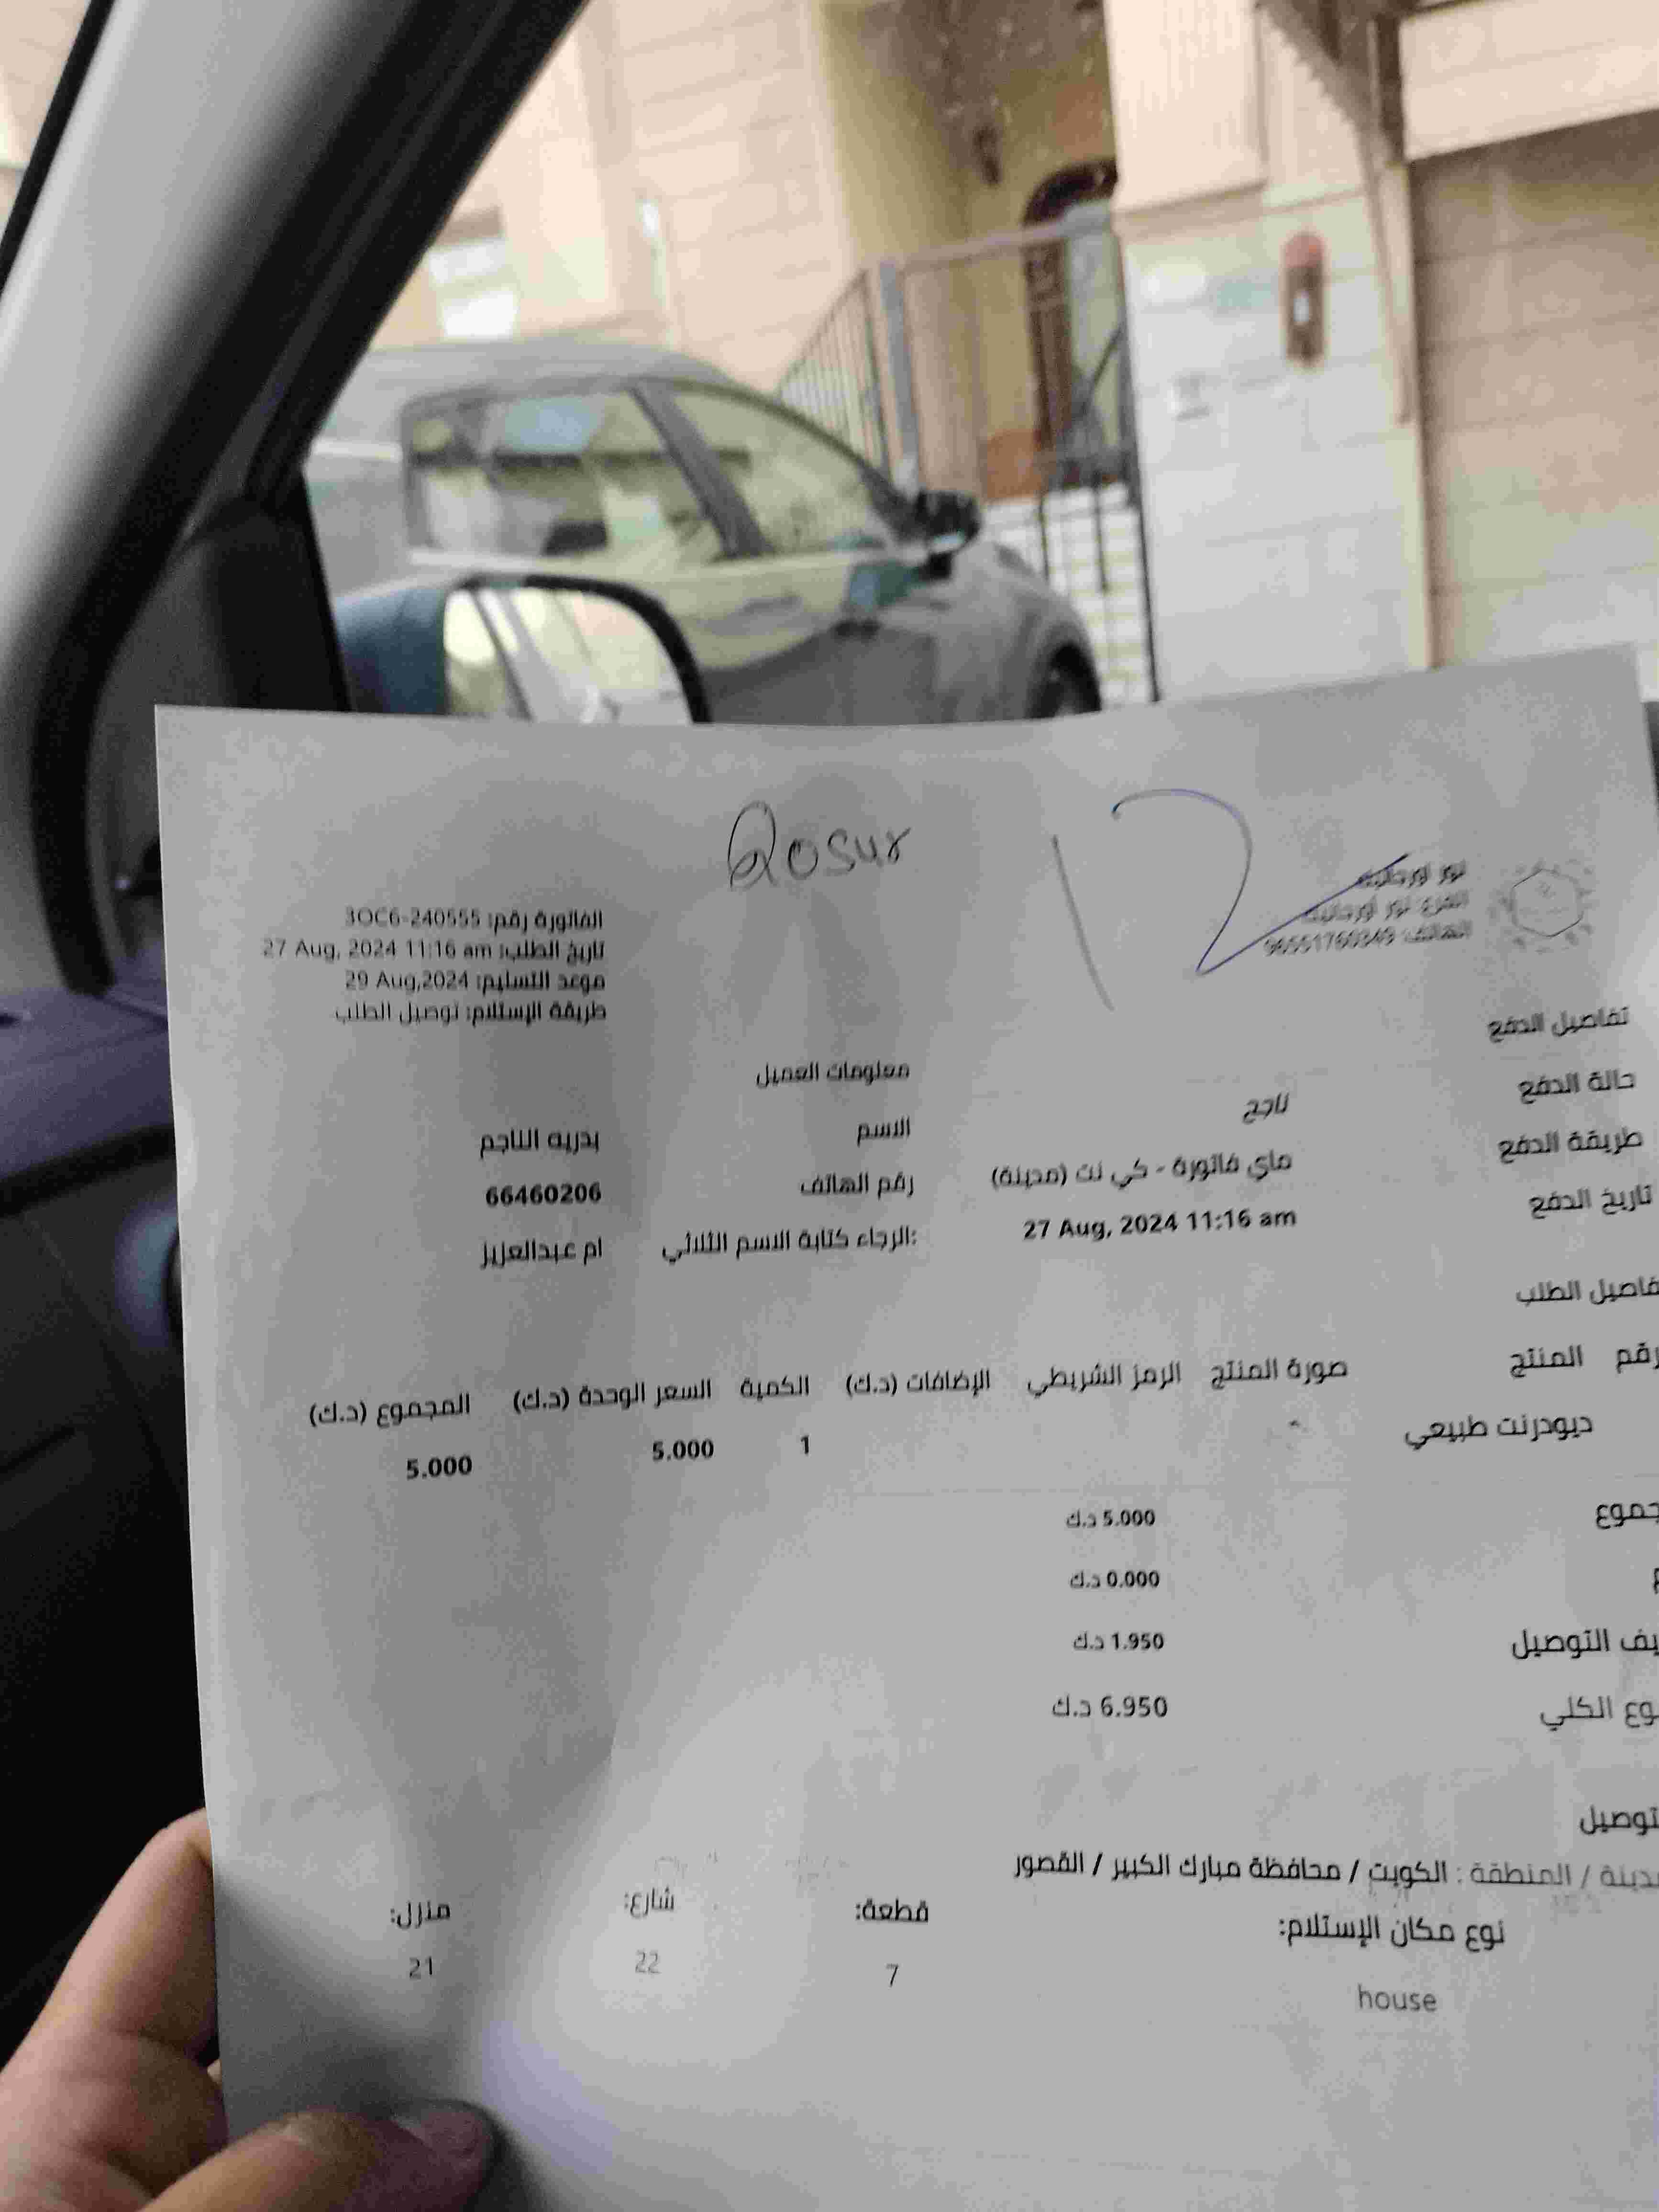 Qosur
12
نور اورجانيك
الفرع: نور اورجانيك
الهاتف:
الفاتورة رقم: 3OC6-240555
تاريخ الطلب: 27 Aug, 2024 11:16 am
موعد التسليم: 29 Aug,2024
طريقة الإستلام: توصيل الطلب
تفاصيل الدفع
حالة الدفع ناجح
طريقة الدفع ماي فاتورة - كي نت (مدينة)
تاريخ الدفع 27 Aug, 2024 11:16 am
معلومات العميل
الاسم بدريه الناجم
رقم الهاتف 66460206
الرجاء كتابة الاسم الثلاثي: ام عبدالعزيز
فاصيل الطلب
رقم المنتج صورة المنتج الرمز الشريطي الإضافات (د.ك) الكمية السعر الوحدة (د.ك) المجموع (د.ك)
ديودرنت طبيعي - 1 5.000 5.000
جموع 5.000 د.ك
0.000 د.ك
يف التوصيل 1.950 د.ك
وع الكلي 6.950 د.ك
توصيل
دينة / المنطقة : الكويت / محافظة مبارك الكبير / القصور
نوع مكان الإستلام: قطعة: شارع: منزل:
house 7 22 21